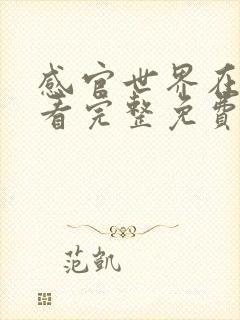 感官世界在
看完整免費
范凱